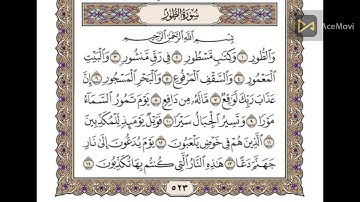 AceMovi
سُورَةُ الطُّورِ
بِسْمِ اللَّهِ الرَّحْمَٰنِ الرَّحِيمِ
وَالطُّورِ ١ وَكِتَابٍ مَّسْطُورٍ ٢ فِي رَقٍّ مَّنشُورٍ ٣ وَالْبَيْتِ
الْمَعْمُورِ ٤ وَالسَّقْفِ الْمَرْفُوعِ ٥ وَالْبَحْرِ الْمَسْجُورِ ٦ إِنَّ
عَذَابَ رَبِّكَ لَوَاقِعٌ ٧ مَّا لَهُ مِن دَافِعٍ ٨ يَوْمَ تَمُورُ السَّمَاءُ
مَوْرًا ٩ وَتَسِيرُ الْجِبَالُ سَيْرًا ١٠ فَوَيْلٌ يَوْمَئِذٍ لِّلْمُكَذِّبِينَ
١١ الَّذِينَ هُمْ فِي خَوْضٍ يَلْعَبُونَ ١٢ يَوْمَ يُدَعُّونَ إِلَىٰ نَارِ
جَهَنَّمَ دَعًّا ١٣ هَٰذِهِ النَّارُ الَّتِي كُنتُم بِهَا تُكَذِّبُونَ ١٤
٥٢٣